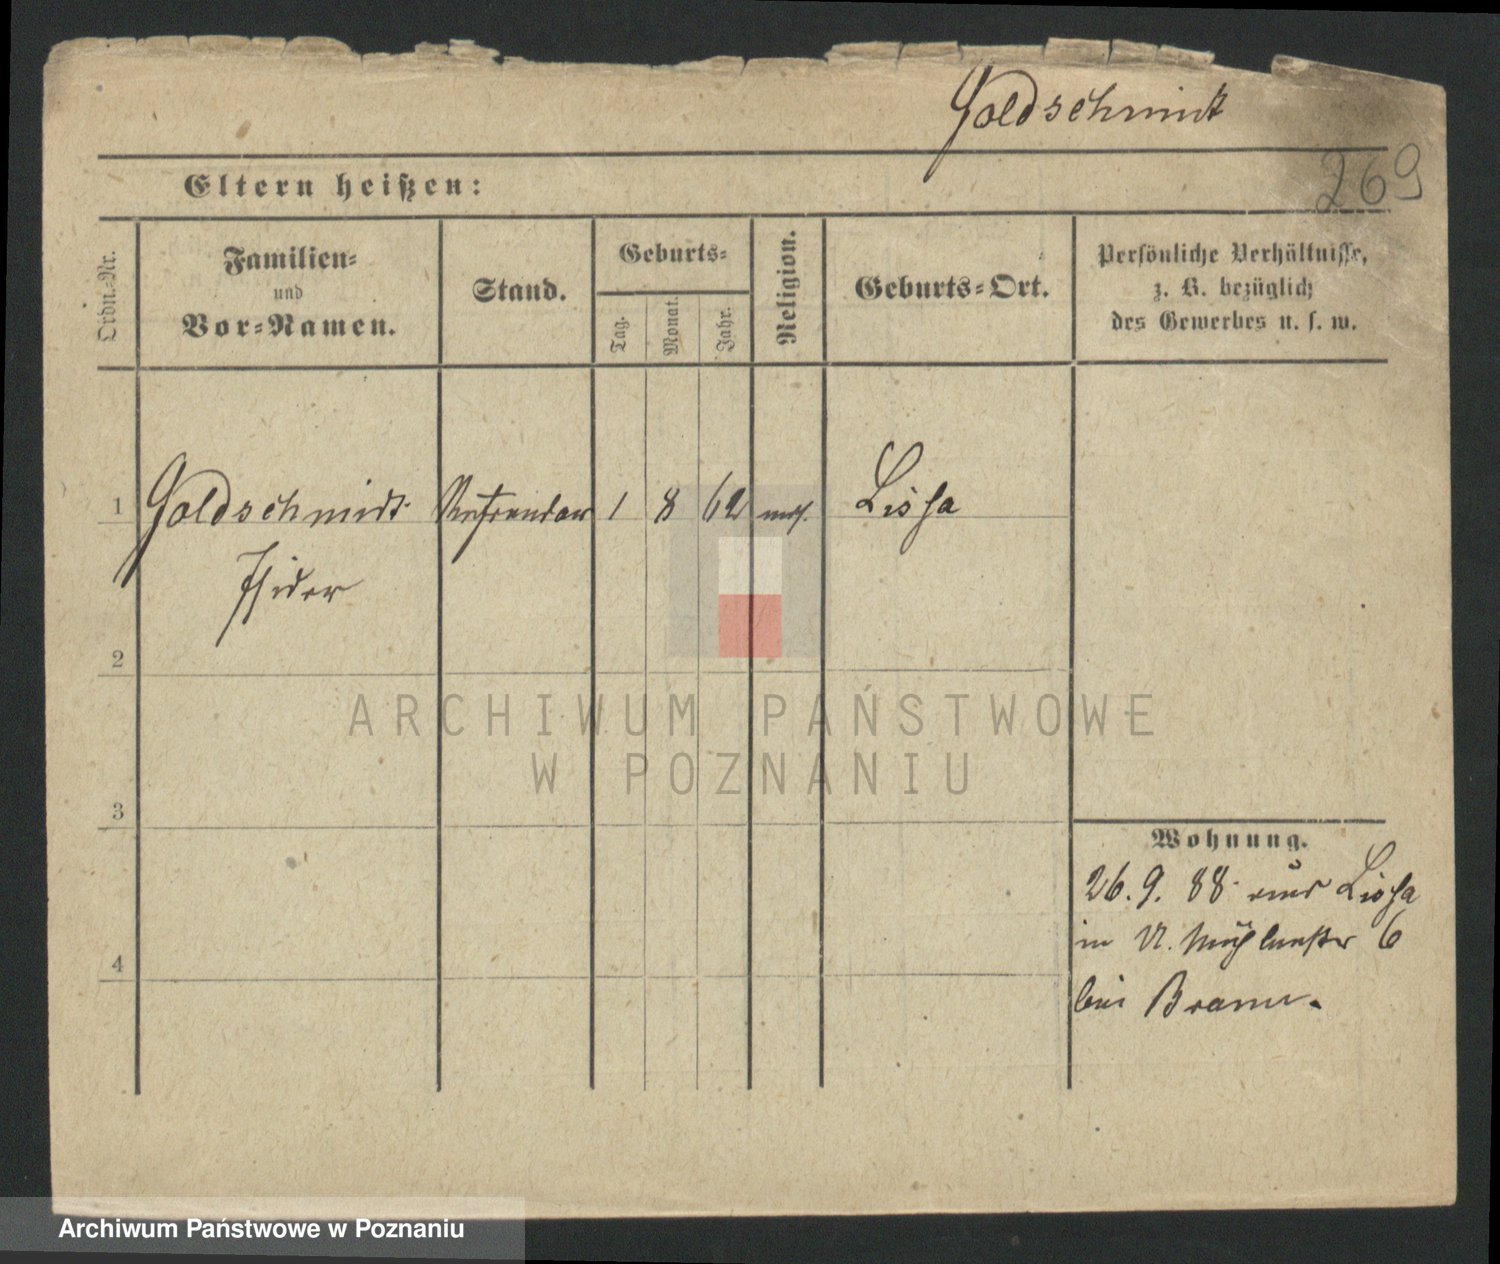 Goldschmidt
269
Eltern heißen:
Ordn.-Nr.
Familien-
und
Vor-Namen.
Stand.
Geburts-
Tag.
Monat.
Jahr.
Religion.
Geburts-Ort.
Persönliche Verhältnisse,
z. B. bezüglich
des Gewerbes u. s. w.
1 Goldschmidt Referendar 1 8 62 mos. Lissa
Isidor
2
3
4
ARCHIWUM PAŃSTWOWE
W POZNANIU
Wohnung.
26. 9. 88 aus Lissa
in Mühlenstr 6
bei
Archiwum Państwowe w Poznaniu